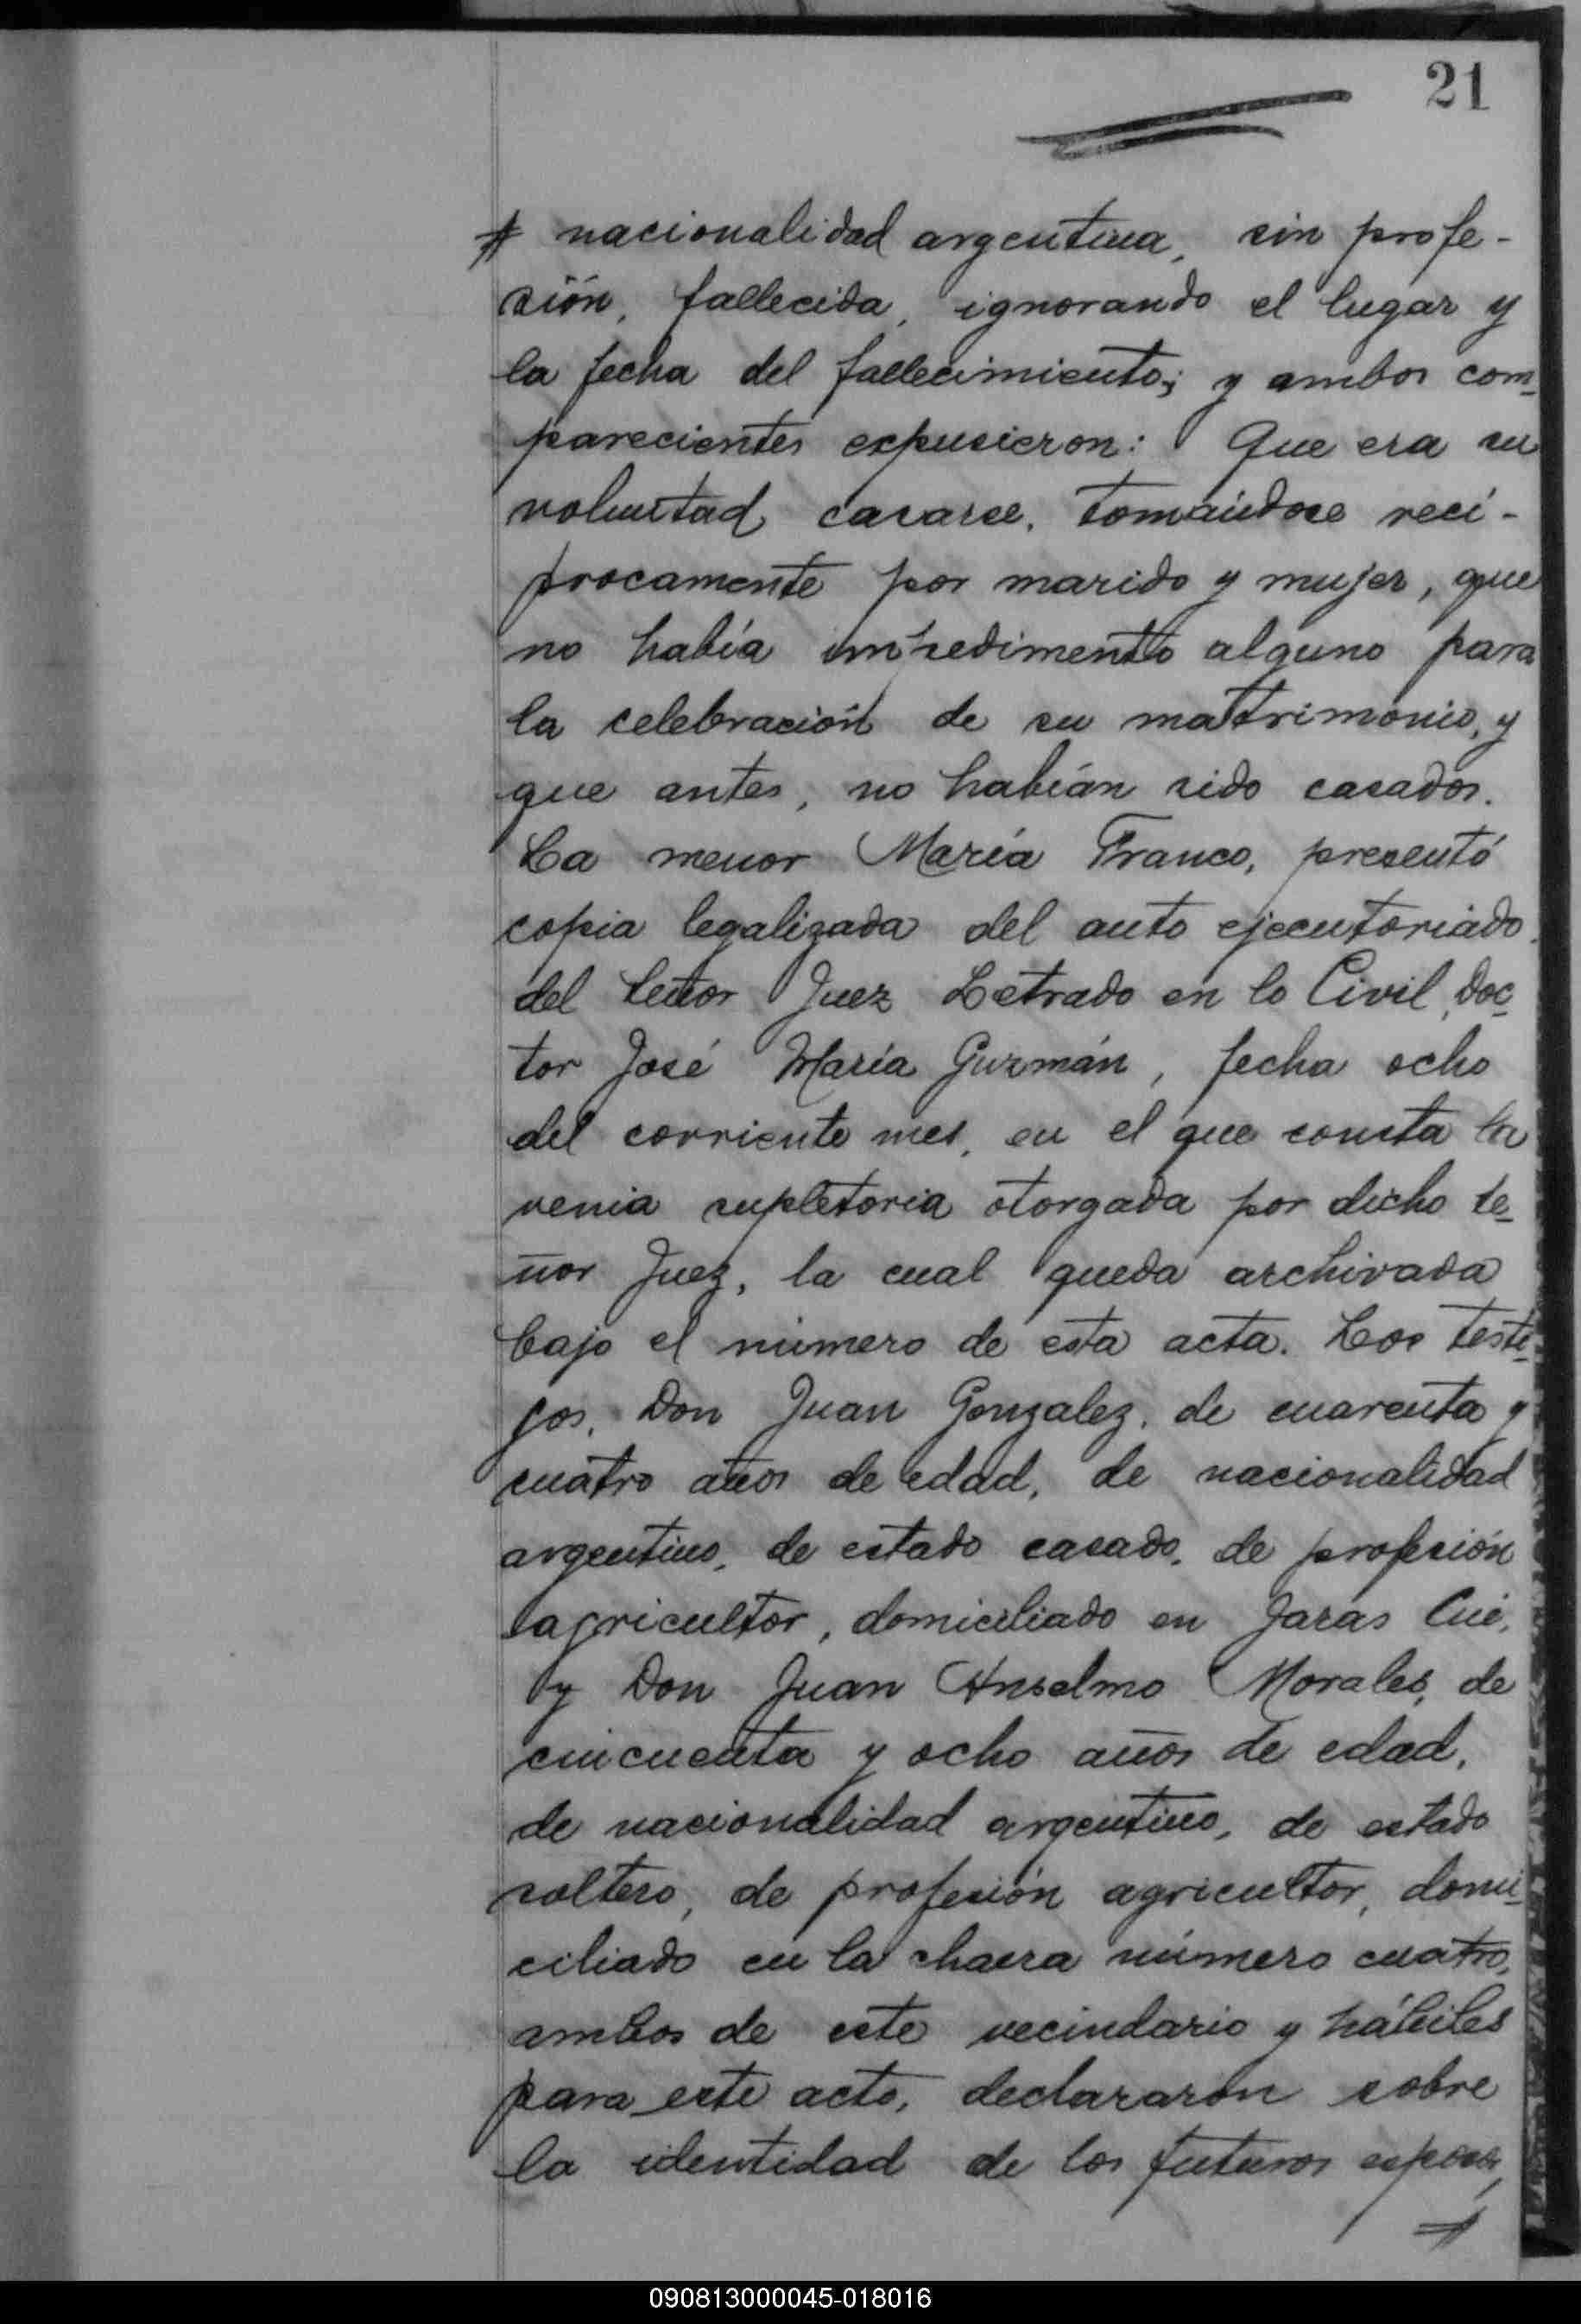 21
# nacionalidad argentina, sin profe-
sión, fallecida, ignorando el lugar y
la fecha del fallecimiento; y ambos com-
parecientes expusieron: Que era su
voluntad casarse, tomándose reci-
procamente por marido y mujer, que
no había impedimento alguno para
la celebración de su matrimonio, y
que antes, no habían sido casados.
La menor María Franco, presentó
copia legalizada del auto ejecutoriado
del Señor Juez Letrado en lo Civil, Doc-
tor José María Guzmán, fecha ocho
del corriente mes, en el que consta la
venia supletoria otorgada por dicho Se-
ñor Juez, la cual queda archivada
bajo el número de esta acta. Los testi-
gos, Don Juan Gonzalez, de cuarenta y
cuatro años de edad, de nacionalidad
argentino, de estado casado, de profesión
agricultor, domiciliado en Jaras Cué,
y Don Juan Anselmo Morales, de
cincuenta y ocho años de edad,
de nacionalidad argentino, de estado
soltero, de profesión agricultor, domi-
ciliado en la chacra número cuatro,
ambos de este vecindario y hábiles
para este acto, declararon sobre
la identidad de los futuros esposos,
090813000045-018016